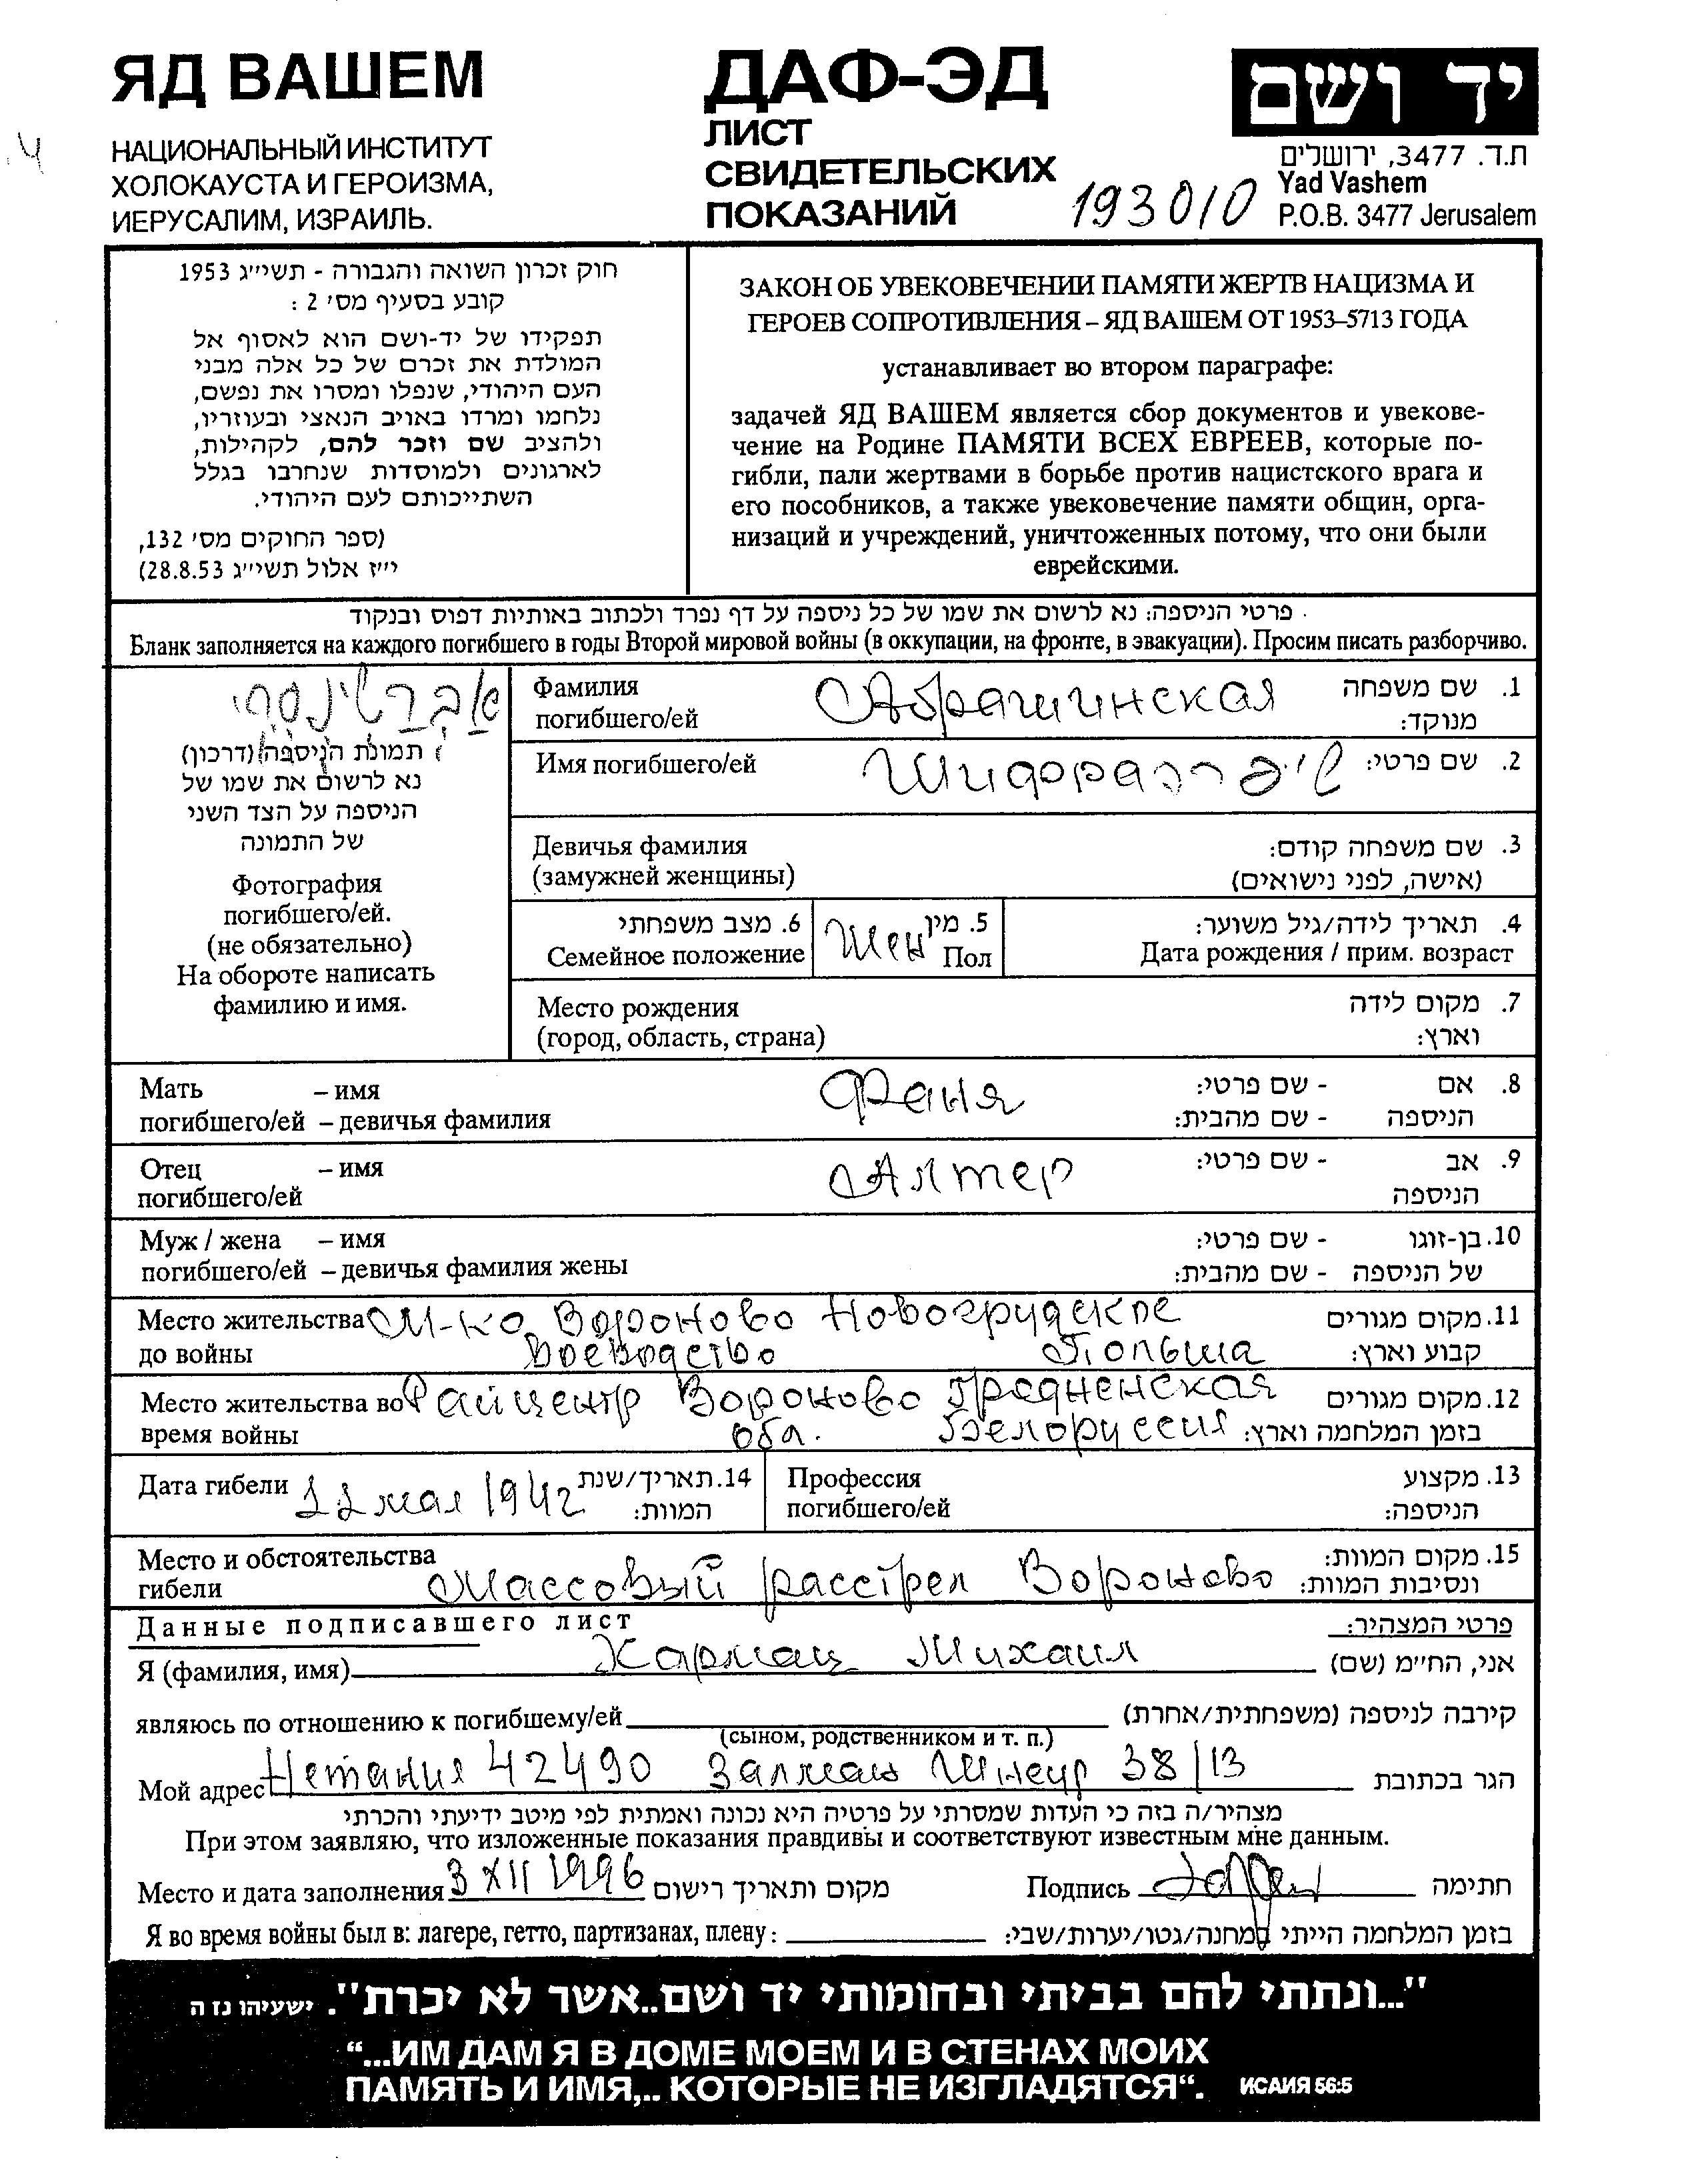 ЯД ВАШЕМ
НАЦИОНАЛЬНЫЙ ИНСТИТУТ
ХОЛОКАУСТА И ГЕРОИЗМА,
ИЕРУСАЛИМ, ИЗРАИЛЬ.
ДАФ-ЭД
ЛИСТ
СВИДЕТЕЛЬСКИХ
ПОКАЗАНИЙ
193010
יד ושם
ת.ד. 3477, ירושלים
Yad Vashem
P.O.B. 3477 Jerusalem
חוק זכרון השואה והגבורה - תשי״ג 1953
קובע בסעיף מס׳ 2 :
תפקידו של יד-ושם הוא לאסוף אל
המולדת את זכרם של כל אלה מבני
העם היהודי, שנפלו ומסרו את נפשם,
נלחמו ומרדו באויב הנאצי ובעוזריו,
ולהציב שם וזכר להם, לקהילות,
לארגונים ולמוסדות שנחרבו בגלל
השתייכותם לעם היהודי.
(ספר החוקים מס׳ 132,
י״ז אלול תשי״ג 28.8.53)
ЗАКОН ОБ УВЕКОВЕЧЕНИИ ПАМЯТИ ЖЕРТВ НАЦИЗМА И
ГЕРОЕВ СОПРОТИВЛЕНИЯ – ЯД ВАШЕМ ОТ 1953–5713 ГОДА
устанавливает во втором параграфе:
задачей ЯД ВАШЕМ является сбор документов и увекове-
чение на Родине ПАМЯТИ ВСЕХ ЕВРЕЕВ, которые по-
гибли, пали жертвами в борьбе против нацистского врага и
его пособников, а также увековечение памяти общин, орга-
низаций и учреждений, уничтоженных потому, что они были
еврейскими.
פרטי הניספה: נא לרשום את שמו של כל ניספה על דף נפרד ולכתוב באותיות דפוס ובנקוד
Бланк заполняется на каждого погибшего в годы Второй мировой войны (в оккупации, на фронте, в эвакуации). Просим писать разборчиво.
תמונת הניספה (דרכון)
נא לרשום את שמו של
הניספה על הצד השני
של התמונה
Фотография
погибшего/ей.
(не обязательно)
На обороте написать
фамилию и имя.
Фамилия Абрашинская 1. שם משפחה
погибшего/ей מנוקד:
Имя погибшего/ей Шифра שיפרה 2. שם פרטי:
Девичья фамилия 3. שם משפחה קודם:
(замужней женщины) (אישה, לפני נישואים)
6. מצב משפחתי 5. מין 4. תאריך לידה/גיל משוער:
Семейное положение Жен Пол Дата рождения / прим. возраст
Место рождения 7. מקום לידה
(город, область, страна) וארץ:
Мать – имя Фаня 8. אם - שם פרטי:
погибшего/ей – девичья фамилия הניספה - שם מהבית:
Отец – имя Алтер 9. אב - שם פרטי:
погибшего/ей הניספה
Муж / жена – имя 10. בן-זוגו - שם פרטי:
погибшего/ей – девичья фамилия жены של הניספה - שם מהבית:
Место жительства М-ко Вороново Новогрудское 11. מקום מגורים
до войны воеводство Польша קבוע וארץ:
Место жительства во Райцентр Вороново Гродненская 12. מקום מגורים
время войны обл. Белоруссия בזמן המלחמה וארץ:
Дата гибели 11 мая 1942 14. תאריך/שנת המוות: Профессия 13. מקצוע
погибшего/ей הניספה:
Место и обстоятельства 15. מקום המוות:
гибели Массовый расстрел Вороново ונסיבות המוות:
Данные подписавшего лист פרטי המצהיר:
Я (фамилия, имя) Хармац Михаил אני, הח״מ (שם)
являюсь по отношению к погибшему/ей קירבה לניספה (משפחתית/אחרת)
(сыном, родственником и т. п.)
Мой адрес Нетания 42490 Залман Шнеур 38/13 הגר בכתובת
מצהיר/ה בזה כי העדות שמסרתי על פרטיה היא נכונה ואמתית לפי מיטב ידיעתי והכרתי
При этом заявляю, что изложенные показания правдивы и соответствуют известным мне данным.
Место и дата заполнения 3 XII 1996 מקום ותאריך רישום Подпись חתימה
Я во время войны был в: лагере, гетто, партизанах, плену: בזמן המלחמה הייתי במחנה/גטו/יערות/שבי:
"...ונתתי להם בביתי ובחומותי יד ושם..אשר לא יכרת". ישעיהו נז ה
“...ИМ ДАМ Я В ДОМЕ МОЕМ И В СТЕНАХ МОИХ
ПАМЯТЬ И ИМЯ,.. КОТОРЫЕ НЕ ИЗГЛАДЯТСЯ“. ИСАИЯ 56:5